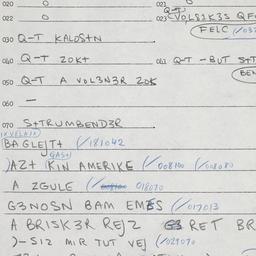 020 O
021
022 O
023 Q-T VOLS1K3S QF
FELC (/037
030 Q-T KALOS+N
040 Q-T ZOK+
041 Q-T -BUT S+T
BEN
050 Q-T A VOL3N3R ZOK
060 —
070 S+TRUMBEND3R
BAGLEJT+ (/181042
GAS+
)AZ+ KIN AMERIKE (/008100 (/008080
A ZGULE (/ 018070
G3NOSN BAM EMBS (/017013
A BRISK3R REJZ G3 RET BR
)-SIZ MIR TUT VEJ (/029070